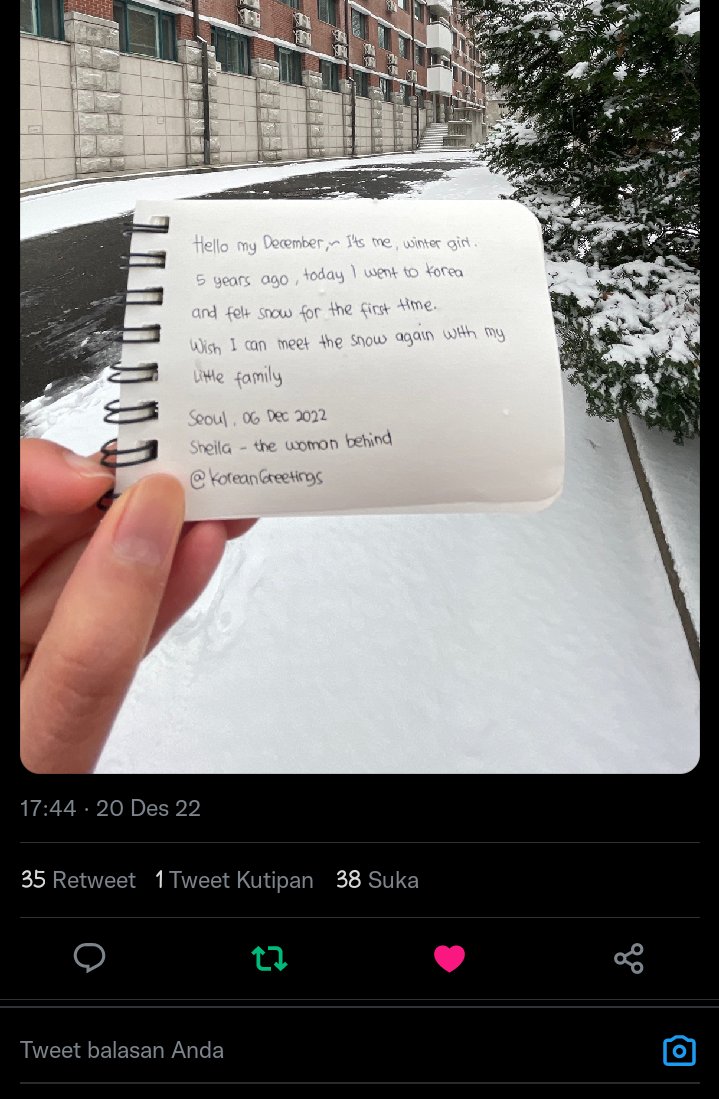 Hello my December,~ It's me, winter girl.
5 years ago, today I went to Korea
and felt snow for the first time.
Wish I can meet the snow again with my
little family
Seoul, 06 Dec 2022
Sheila - the woman behind
@KoreanGreetings
17:44 · 20 Des 22
35 Retweet 1 Tweet Kutipan 38 Suka
Tweet balasan Anda